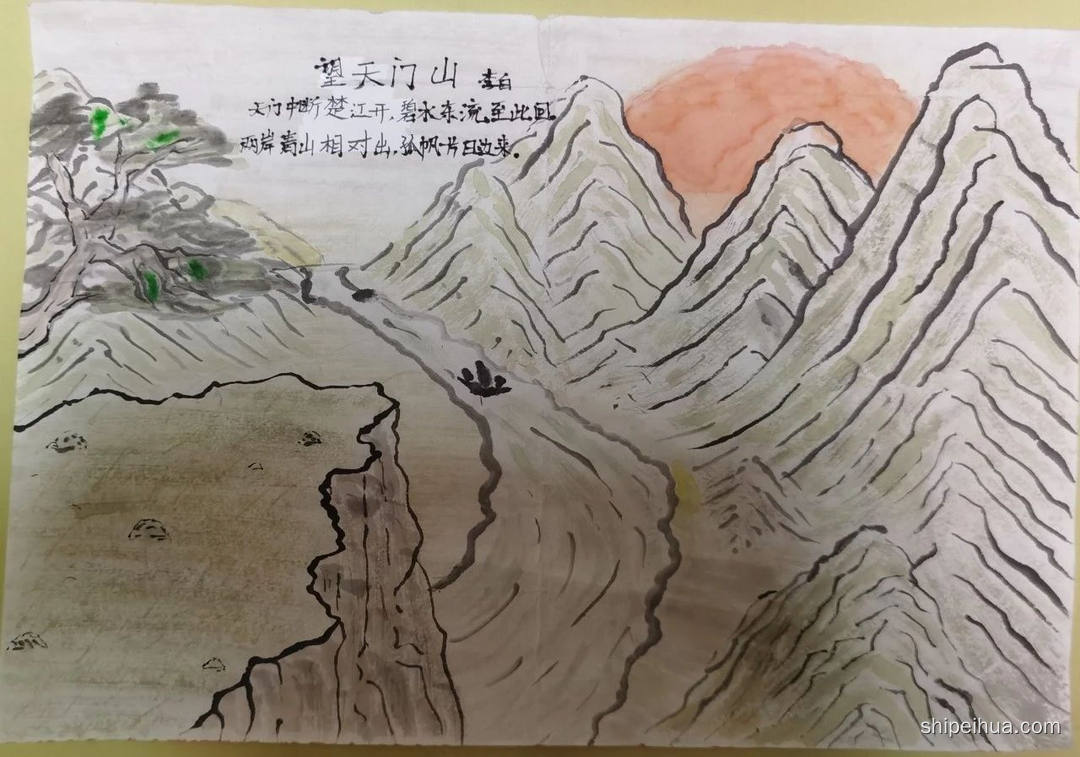 望天门山 李白
天门中断楚江开,碧水东流至此回。
两岸青山相对出,孤帆一片日边来。
shipeihua.com